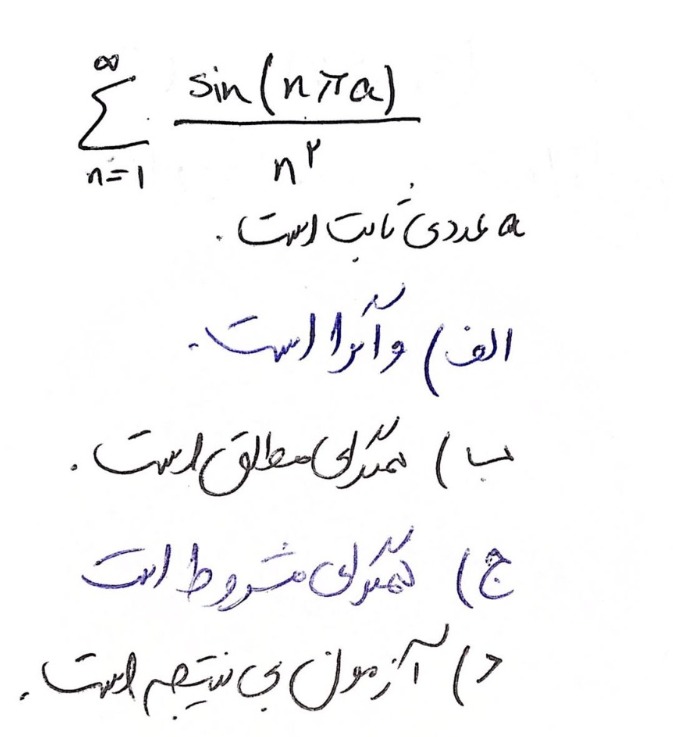 ∞
∑ sin(nπa) / n²
n=1
a عددی ثابت است.
الف) واگرا است.
ب) همگرای مطلق است.
ج) همگرای مشروط است
د) آزمون بی نتیجه است.